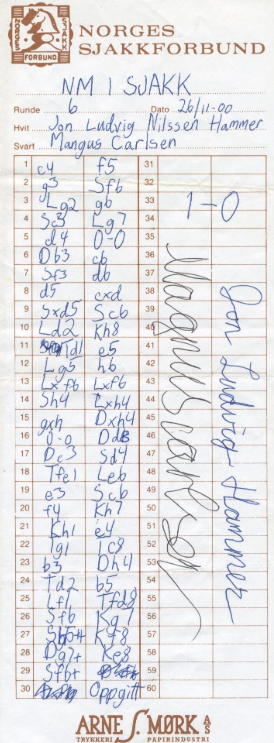 SJAKK
FORBUND
NORGES
SJAKKFORBUND
NM I SJAKK
Runde 6 Dato 26/11-00
Hvit Jon Ludvig Nilssen Hammer
Svart Mangus Carlsen
1 c4 f5 31
2 g3 Sf6 32
3 Lg2 g6 33
4 Sc3 Lg7 34
5 d4 0-0 35
6 Db3 c6 36
7 Sf3 d6 37
8 d5 cxd 38
9 Sxd5 Sc6 39
10 Ld2 Kh8 40
11 Td1 e5 41
12 Lg5 h6 42
13 Lxf6 Lxf6 43
14 Sh4 Lxh4 44
15 gxh Dxh4 45
16 0-0 Dd8 46
17 Dc3 Sd4 47
18 Tfe1 Le6 48
19 e3 Sc6 49
20 f4 Kh7 50
21 Kh1 e4 51
22 Tg1 Tc8 52
23 b3 Dh4 53
24 Td2 b5 54
25 Lf1 Tfd8 55
26 Sf6 Kg7 56
27 Sh5+ Kf8 57
28 Dg7+ Ke8 58
29 Sf6+ 59
30 Oppgitt 60
1-0
Magnus Carlsen
Jon Ludvig Hammer
ARNE S. MØRK A/S
TRYKKERI PAPIRINDUSTRI